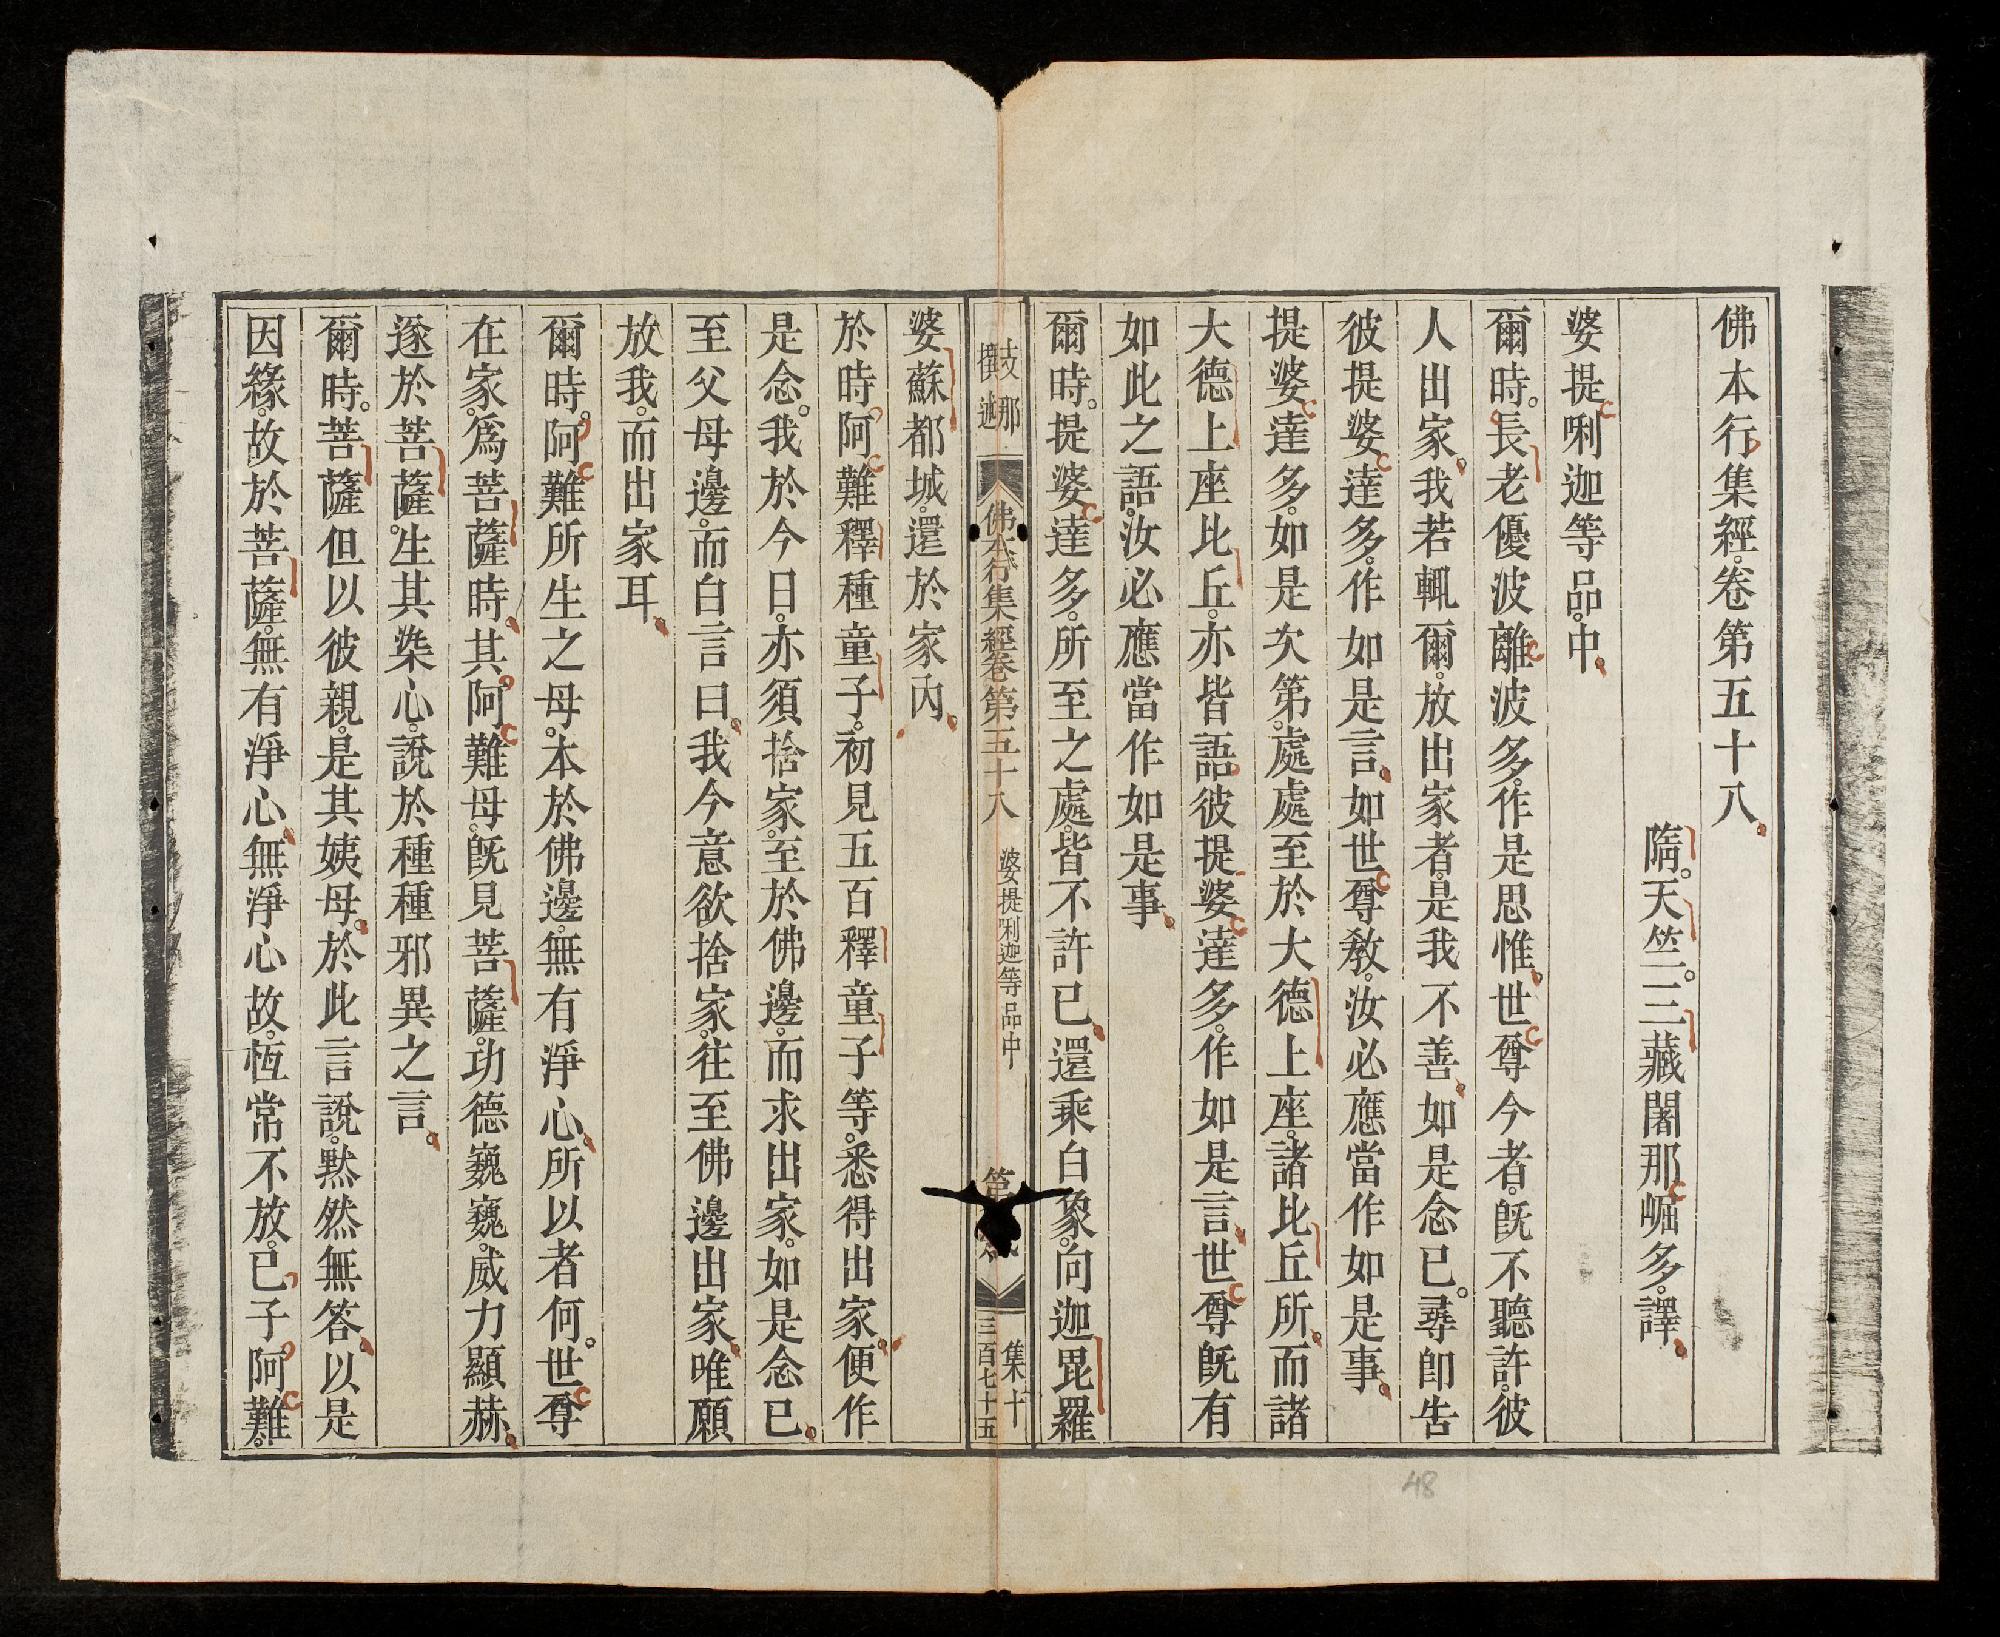 佛本行集經。卷第五十八
隋。天竺。三藏闍那崛多。譯
婆提唎迦等品。中
爾時。長老優波離波多。作是思惟。世尊今者。既不聽許。彼
人出家。我若輒爾。放出家者。是我不善。如是念已。尋即告
彼提婆達多。作如是言。如世尊教。汝必應當作如是事。
提婆達多。如是次第。處處至於大德上座。諸比丘所。而諸
大德上座比丘。亦皆語彼提婆達多。作如是言。世尊既有
如此之語。汝必應當作如是事。
爾時。提婆達多。所至之處。皆不許已。還乘白象。向迦毘羅
支那
撰述
佛本行集經卷第五十八
婆提唎迦等品中
第
集十
三百七十五
婆蘇都城。還於家內。
於時。阿難釋種童子。初見五百釋童子等。悉得出家。便作
是念。我於今日。亦須捨家。至於佛邊。而求出家。如是念已。
至父母邊。而白言曰。我今意欲捨家。往至佛邊出家。唯願
放我。而出家耳。
爾時。阿難所生之母。本於佛邊。無有淨心。所以者何。世尊
在家。為菩薩時。其阿難母。既見菩薩。功德巍巍。威力顯赫。
遂於菩薩。生其染心。說於種種邪異之言。
爾時。菩薩但以彼親。是其姨母。於此言說。默然無答。以是
因緣。故於菩薩。無有淨心。無淨心故。恆常不放。已子阿難。